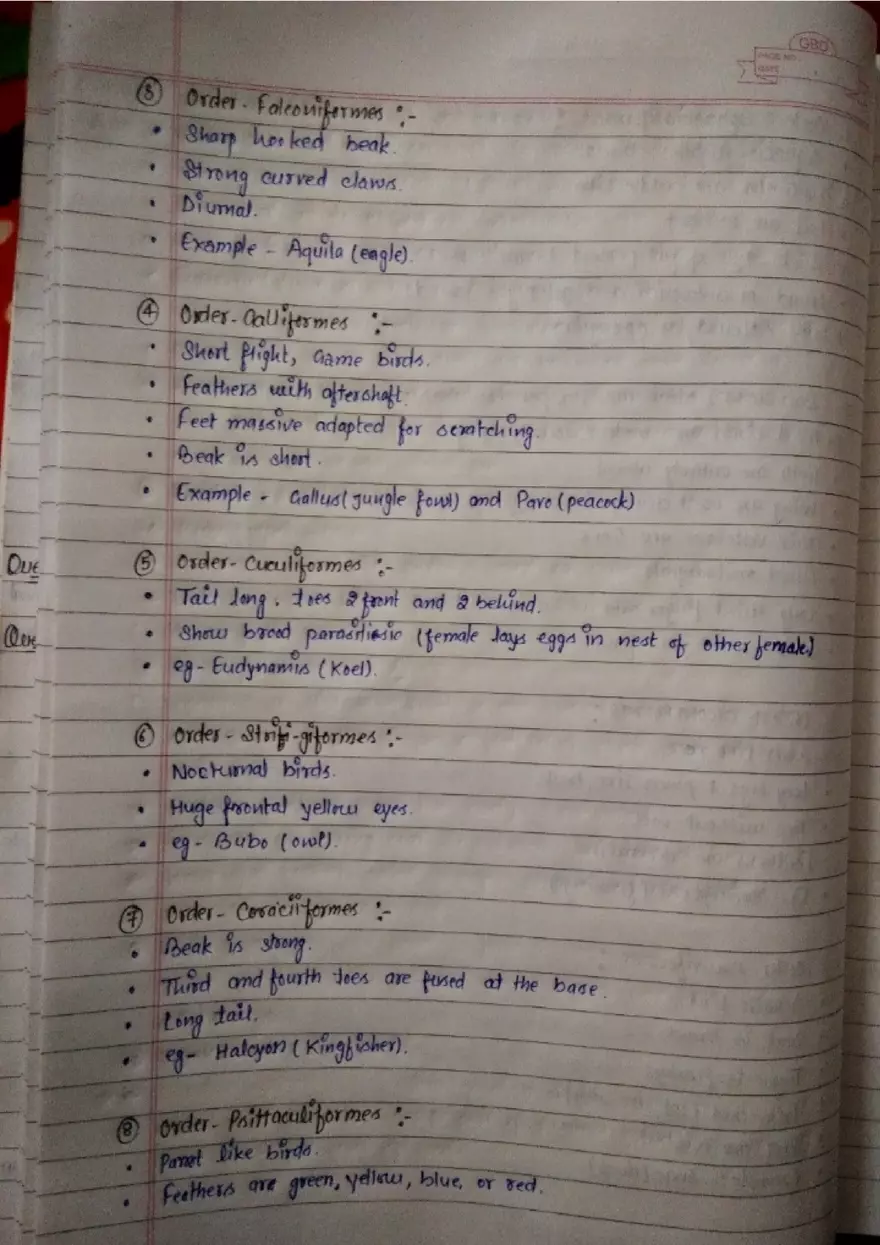 GBD
PAGE NO.
DATE
③ Order - Falconiformes :-
• Sharp hooked beak.
• Strong curved claws.
• Diurnal.
• Example - Aquila (eagle).
④ Order - Galliformes :-
• Short flight, Game birds.
• Feathers with aftershaft.
• Feet massive adapted for scratching.
• Beak is short.
• Example - Gallus (jungle fowl) and Pavo (peacock)
⑤ Order - Cuculiformes :-
• Tail long, toes 2 front and 2 behind.
• Show brood parasitissic (female lays eggs in nest of other female)
• eg - Eudynamis (Koel).
⑥ Order - Strigi-giformes :-
• Nocturnal birds.
• Huge frontal yellow eyes.
• eg - Bubo (owl).
⑦ Order - Coraciiformes :-
• Beak is strong.
• Third and fourth toes are fused at the base.
• Long tail.
• eg - Halcyon (Kingfisher).
⑧ Order - Psittaculiformes :-
• Parrot like birds.
• Feathers are green, yellow, blue, or red.
Que